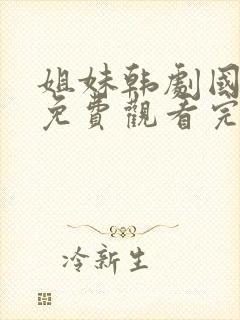 姐妹韩劇國
免費觀看完
冷新生